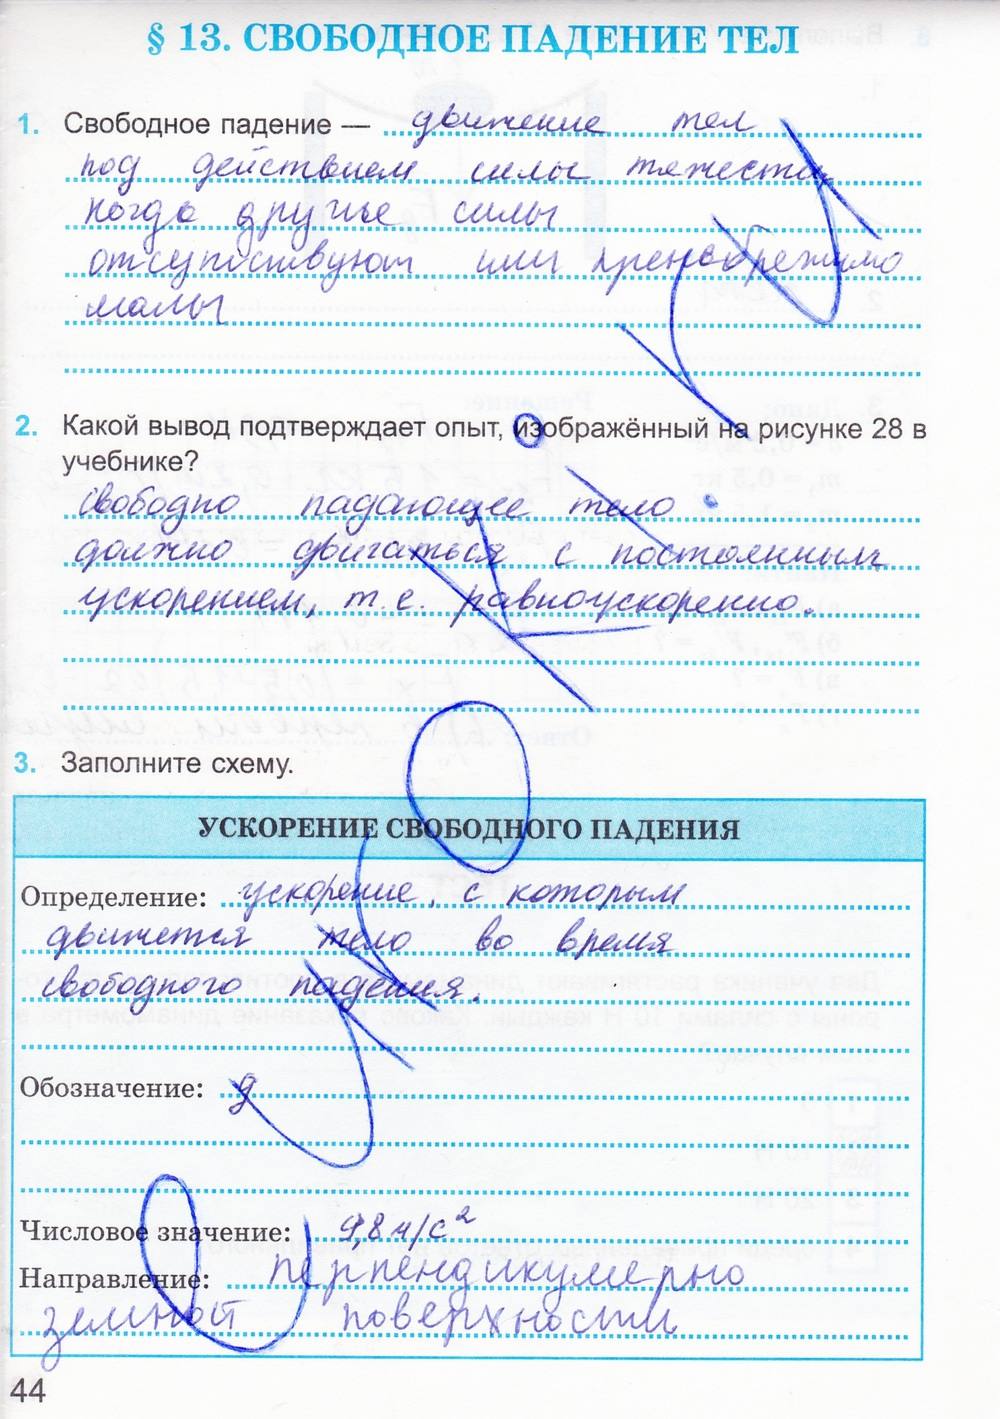 § 13. СВОБОДНОЕ ПАДЕНИЕ ТЕЛ
1. Свободное падение — движение тел
под действием силы тяжести,
когда другие силы
отсутствуют или пренебрежимо
малы
2. Какой вывод подтверждает опыт, изображённый на рисунке 28 в
учебнике?
Свободно падающее тело
должно двигаться с постоянным
ускорением, т.е. равноускоренно.
3. Заполните схему.
УСКОРЕНИЕ СВОБОДНОГО ПАДЕНИЯ
Определение: ускорение, с которым
движется тело во время
свободного падения.
Обозначение: g
Числовое значение: 9,8 м/с²
Направление: перпендикулярно
земной поверхности
44